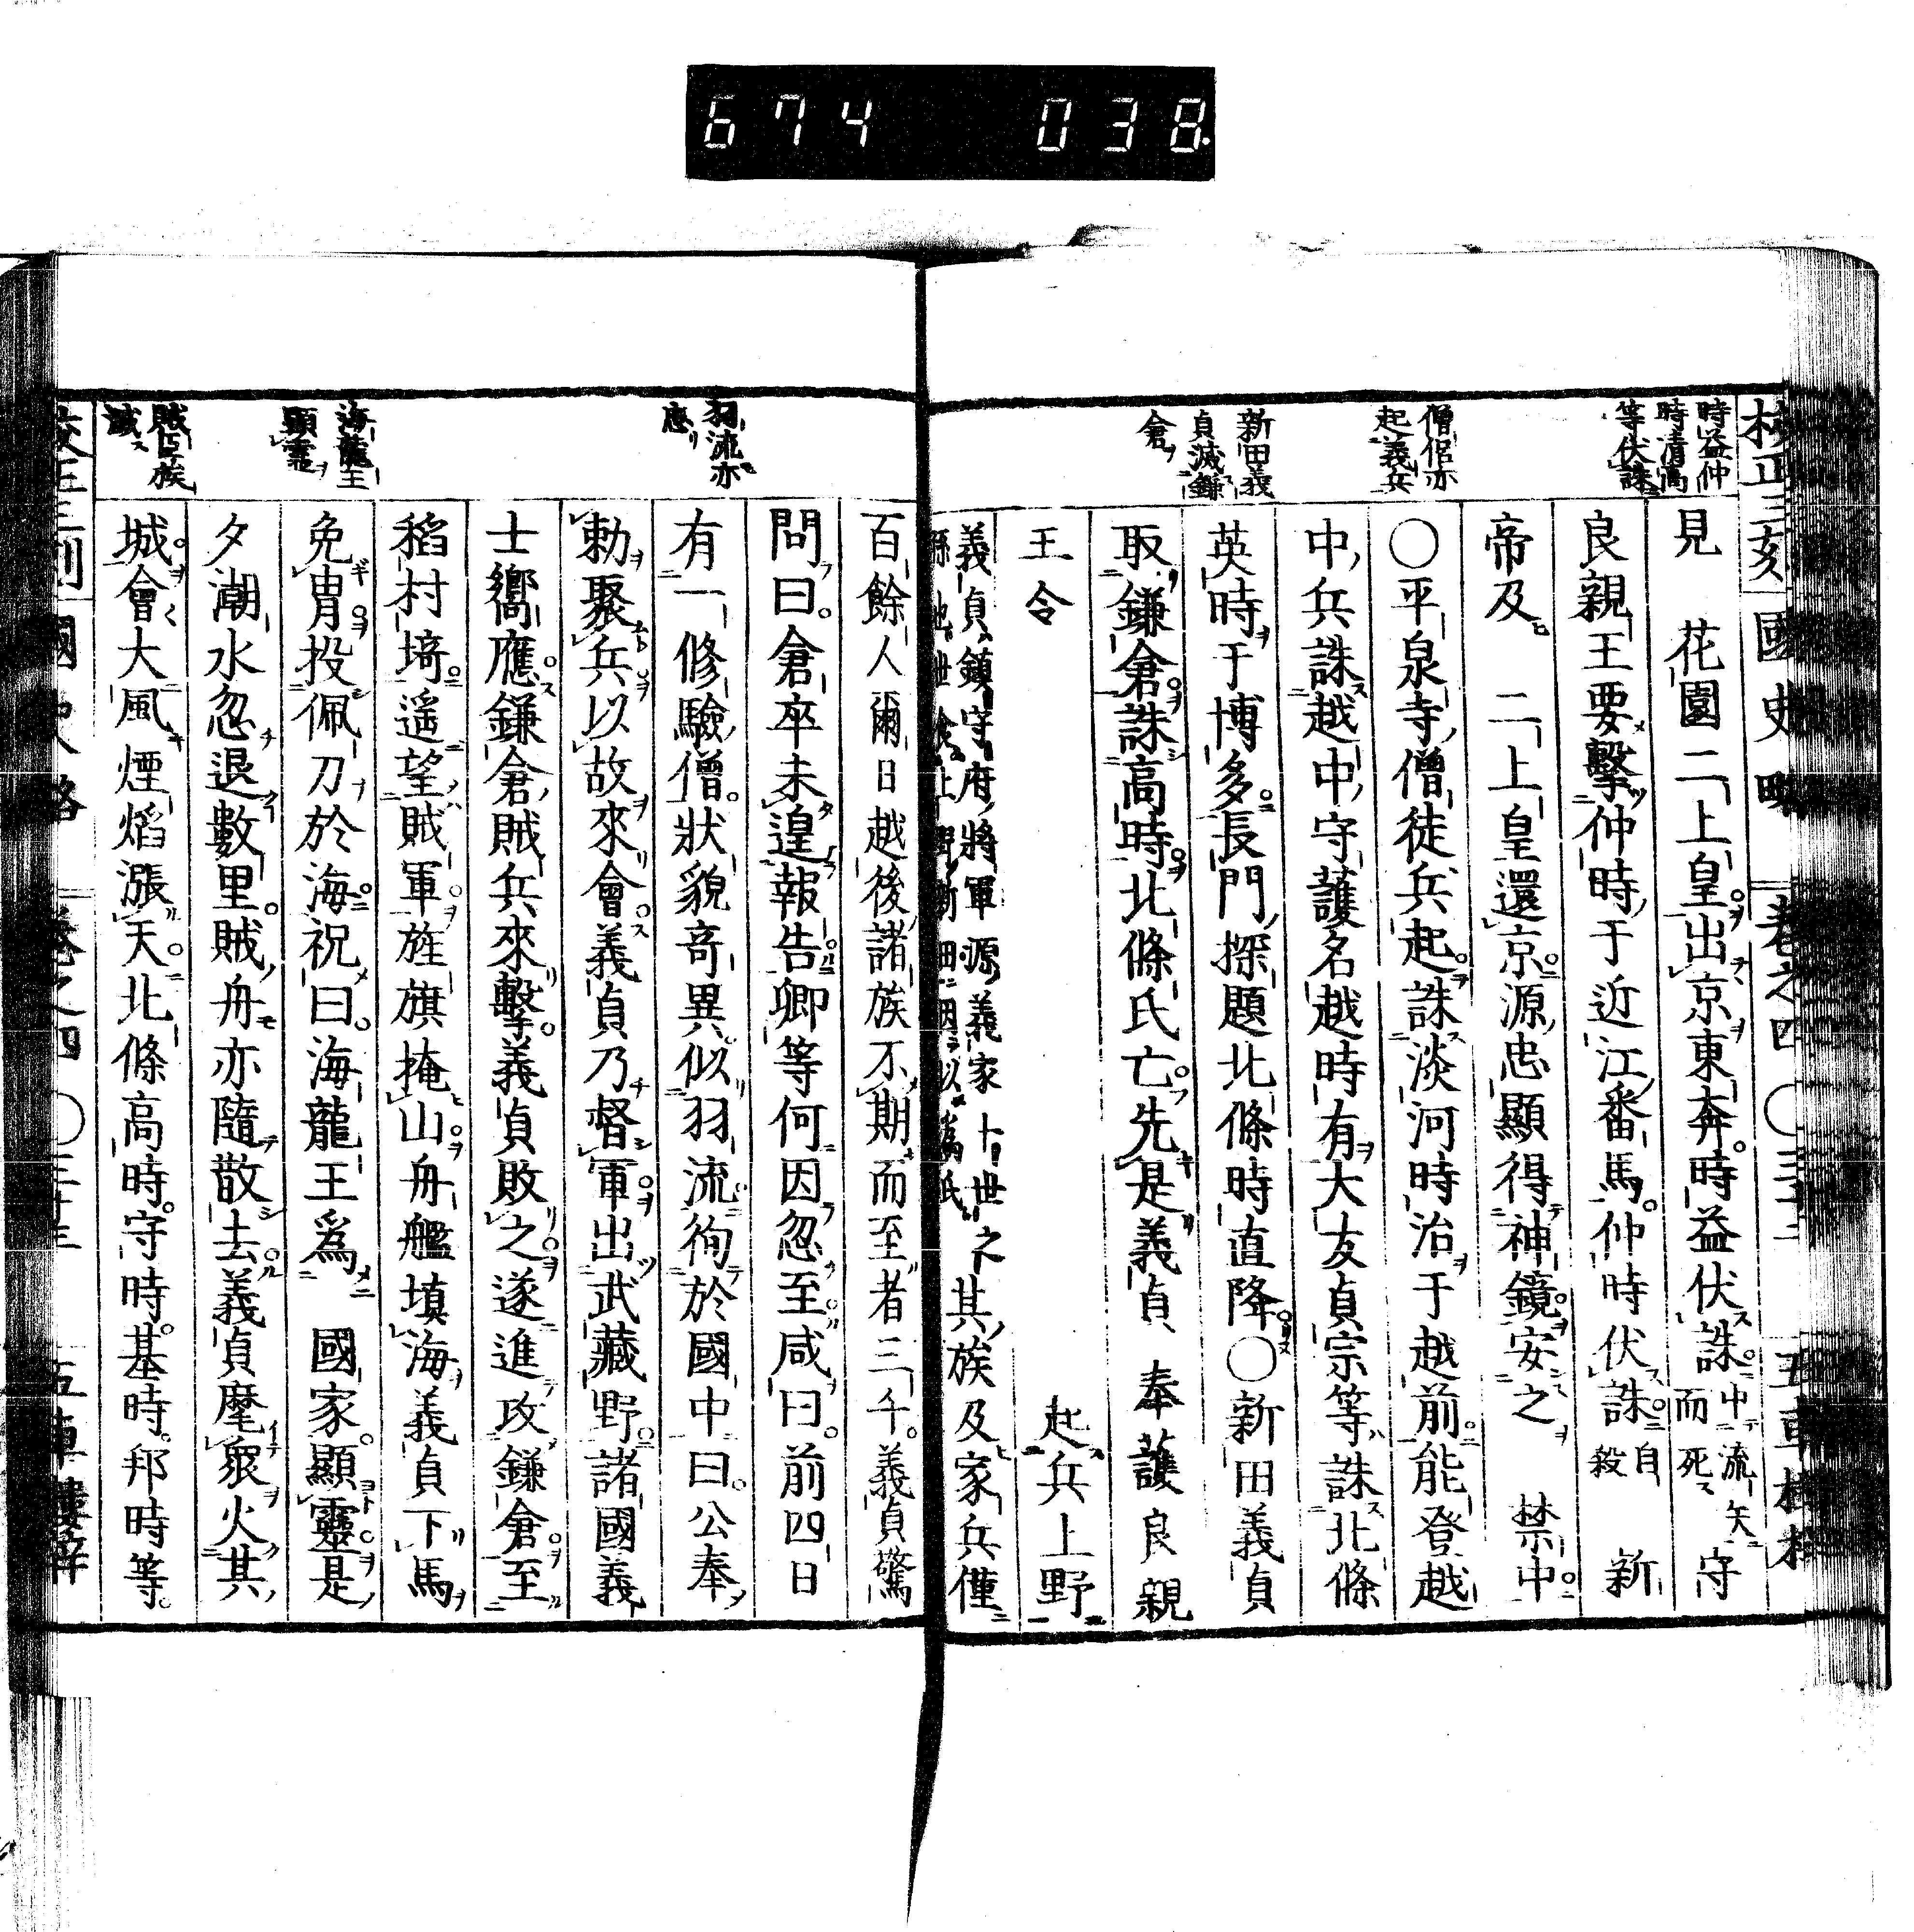 674 038
時益仲
時清高
等伏誅
僧侶亦
起義兵
新田義
貞滅鎌
倉
國史略 卷之四 〇三十二
見 花園二上皇出京東奔時益伏誅中流矢而死守
良親王要擊仲時于近江番馬仲時伏誅自殺 新
帝及 二上皇還京源忠顯得神鏡安之 禁中
〇平泉寺僧徒兵起誅淡河時治于越前能登越
中兵誅越中守護名越時有大友貞宗等誅北條
英時于博多長門探題北條時直降〇新田義貞
取鎌倉誅高時北條氏亡先是義貞 奉護良親
王令 起兵上野
義貞鎮守府將軍源義家十世之
其族及家兵僅
羽流亦
應
海龍王
顯靈
賊臣族
滅
百餘人爾日越後諸族不期而至者三千義貞驚
問曰倉卒未遑報告卿等何因忽至咸曰前四日
有一修驗僧狀貌奇異似羽流徇於國中曰公奉
勅聚兵以故來會義貞乃督軍出武藏野諸國義
士嚮應鎌倉賊兵來擊義貞敗之遂進攻鎌倉至
稻村埼遥望賊軍旌旗掩山舟艦填海義貞下馬
免冑投佩刀於海祝曰海龍王爲 國家顯靈是
夕潮水忽退數里賊舟亦隨散去義貞麾衆火其
城會大風煙焰漲天北條高時守時基時邦時等